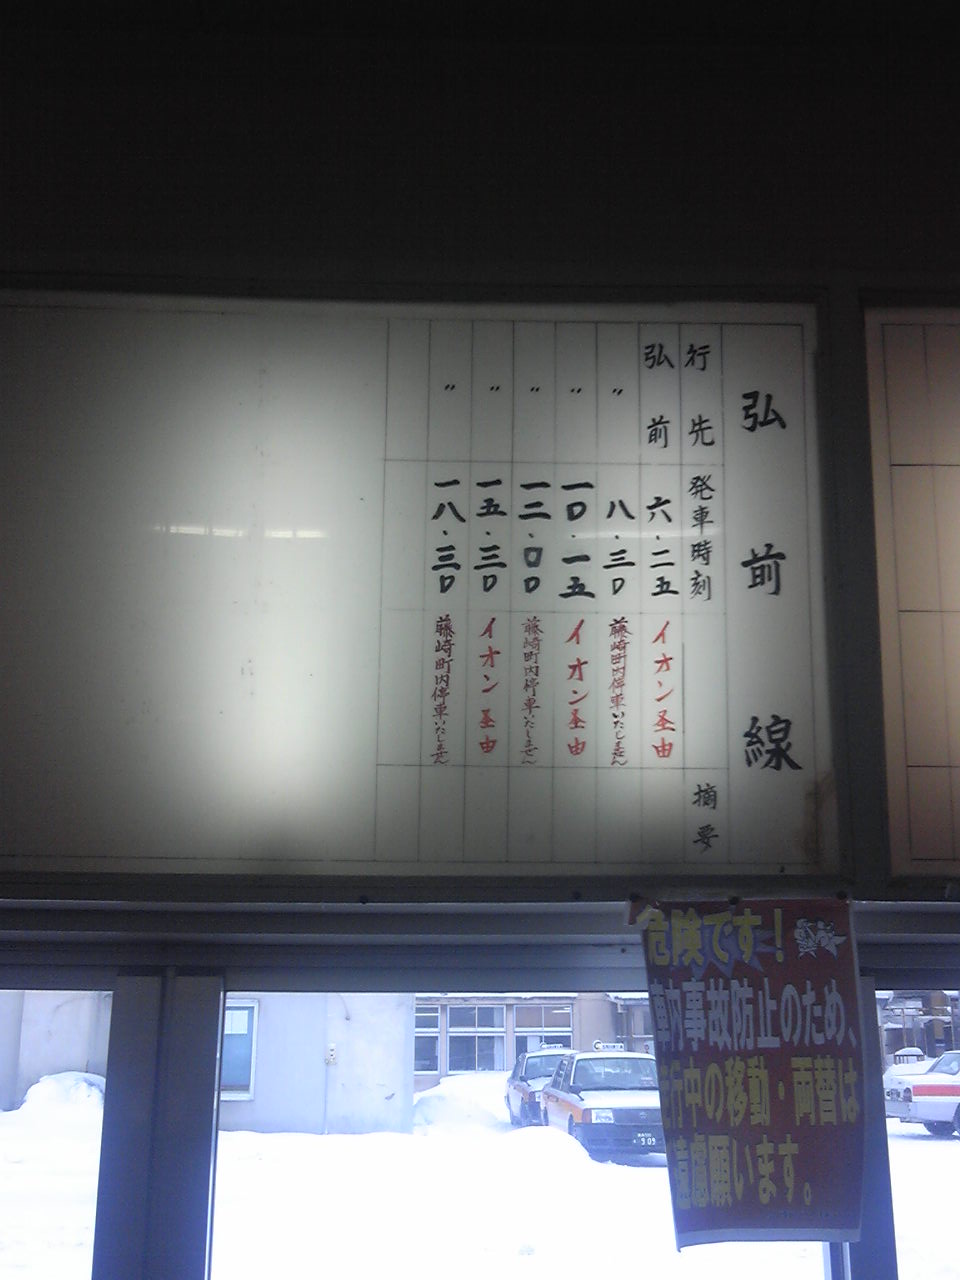 弘前線
行先 発車時刻 摘要
弘前 六.二五 イオン圣由
〃 八.三〇 藤崎町内停車いたしません
〃 一〇.一五 イオン圣由
〃 一二.〇〇 藤崎町内停車いたしません
〃 一五.三〇 イオン圣由
〃 一八.三〇 藤崎町内停車いたしません
危険です!
車内事故防止のため、
走行中の移動・両替は
遠慮願います。
909